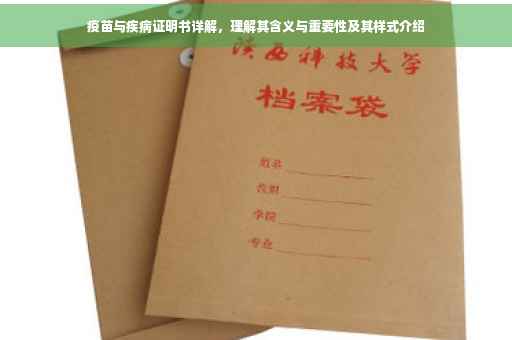 疫苗与疾病证明书详解，理解其含义与重要性及其样式介绍
陕西科技大学
档案袋
学院
专业